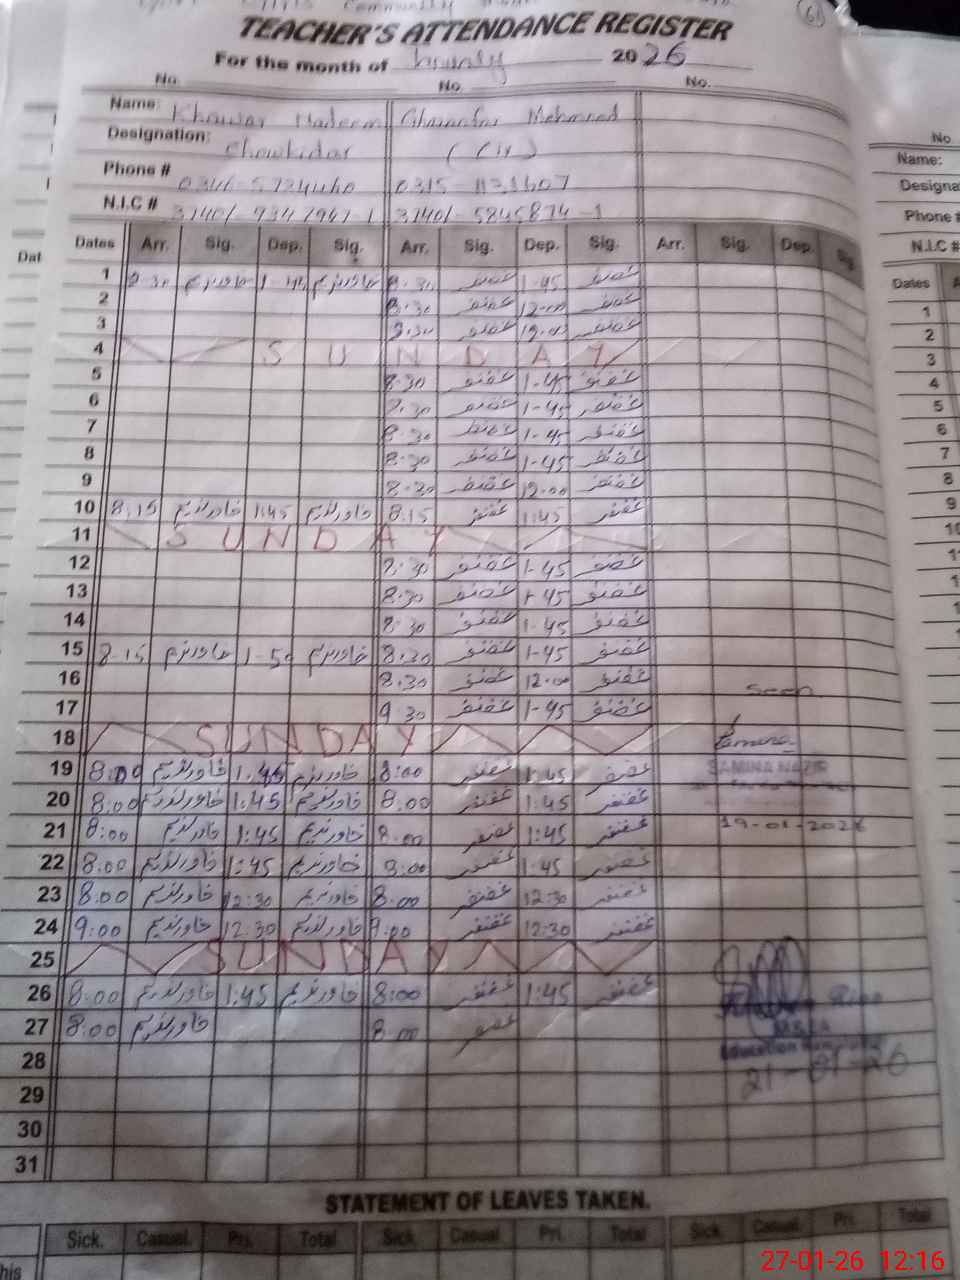 Community
61
TEACHER'S ATTENDANCE REGISTER
For the month of 2026
No. No. No.
Name: Khawar Nadeem
Designation: Chowkidar
Phone # 0315-1131607
N.I.C # 37401-5845874-1
Dates Arr. Sig. Dep. Sig. Arr. Sig. Dep. Sig. Arr. Sig. Dep. Sig
1 8-30 خاورندیم 1-45 خاورندیم 8:30 غضنفر 1-45 غضنفر
2 8:30 غضنفر 12-00 غضنفر
3 غضنفر 12:00 غضنفر
4 SUNDAY
5 8-30 غضنفر 1-45 غضنفر
6 8.30 غضنفر 1-45 غضنفر
7 8:30 غضنفر 1-45 غضنفر
8 8:30 غضنفر 1-45 غضنفر
9 8-30 غضنفر 12:00 غضنفر
10 8:15 خاورندیم 1:45 خاورندیم 8:15 غضنفر 1:45 غضنفر
11 SUNDAY
12 8:30 غضنفر 1-45 غضنفر
13 8:30 غضنفر 1-45 غضنفر
14 8:30 غضنفر 1-45 غضنفر
15 8-15 خاورندیم 1-50 خاورندیم 8:30 غضنفر 1-45 غضنفر
16 8.30 غضنفر 12.00 غضنفر
17 9.30 غضنفر 1-45 غضنفر
seen
18 SUNDAY
19 8:00 خاورندیم 1:45 خاورندیم 8:00 غضنفر 1:45 غضنفر
SAMINA NAZIR
20 8:00 خاورندیم 1:45 خاورندیم 8:00 غضنفر 1:45 غضنفر
19-01-2026
21 8:00 خاورندیم 1:45 خاورندیم 8:00 غضنفر 1:45 غضنفر
22 8:00 خاورندیم 1:45 خاورندیم 8:00 غضنفر 1:45 غضنفر
23 8:00 خاورندیم 12:30 خاورندیم 8:00 غضنفر 12:30 غضنفر
24 9:00 خاورندیم 12:30 خاورندیم 9:00 غضنفر 12:30 غضنفر
25 SUNDAY
26 8:00 خاورندیم 1:45 خاورندیم 8:00 غضنفر 1:45 غضنفر
27 8:00 خاورندیم 8:00 غضنفر
MEA
Education
21-01-26
28
29
30
31
STATEMENT OF LEAVES TAKEN.
Sick. Casual. Pri. Total Sick Casual Pri. Total Sick. Casual. Pri. Total
his
Dat
No
Name:
Designa
Phone #
N.I.C #
Dates A
1
2
3
4
5
6
7
8
9
10
27-01-26 12:16